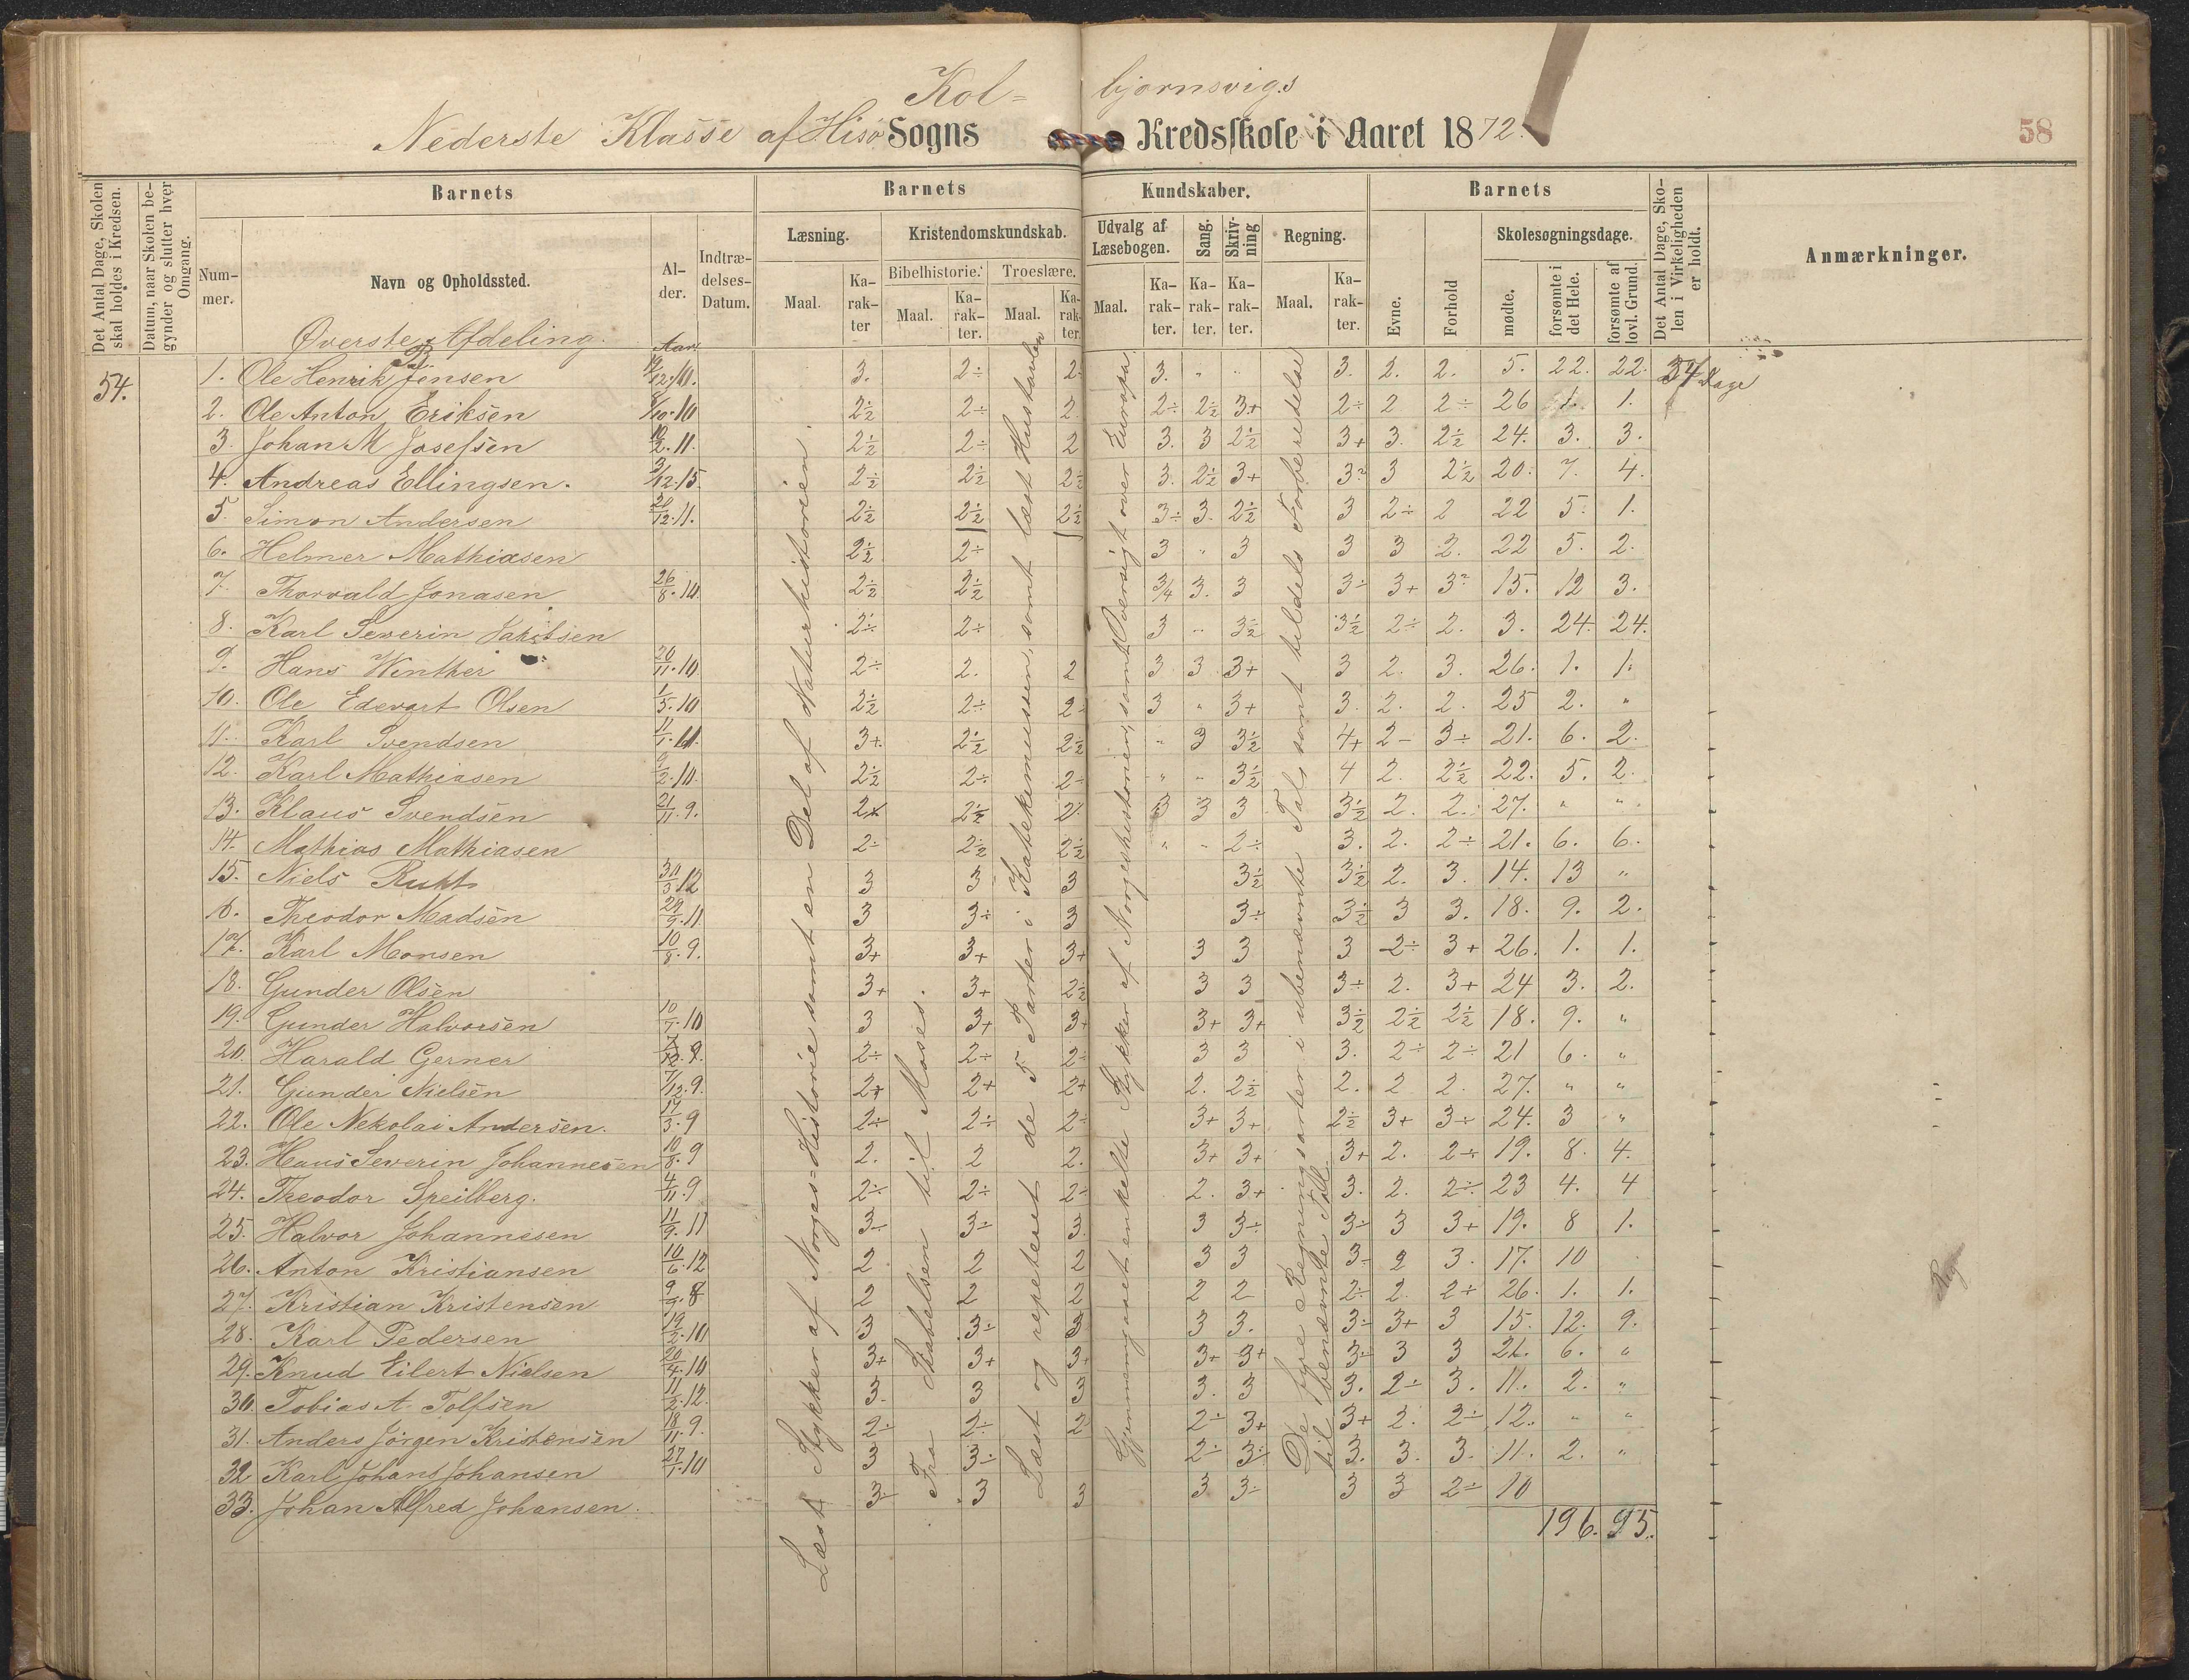 Kol= bjørnsvigs
Nederste Klasse af Hisø Sogns Kredsskole i Aaret 1872.
58
Det Antal Dage, Skolen skal holdes i Kredsen.
Datum, naar Skolen begynder og slutter hver Omgang.
Barnets
Nummer.
Navn og Opholdssted.
Alder.
Indtrædelses-Datum.
Barnets Kundskaber.
Læsning.
Maal.
Karakter
Kristendomskundskab.
Bibelhistorie.
Maal.
Karakter.
Troeslære.
Maal.
Karakter.
Udvalg af Læsebogen.
Maal.
Karakter.
Sang.
Karakter.
Skrivning
Karakter.
Regning.
Maal.
Karakter.
Barnets
Evne.
Forhold
Skolesøgningsdage.
mødte.
forsømte i det Hele.
forsømte af lovl. Grund.
Det Antal Dage, Skolen i Virkeligheden er holdt.
Anmærkninger.
Øverste Afdeling. Aar.
54.
1. Ole Henrik Jensen 3. 2÷ 2 3. " " 3. 2. 2. 5. 22. 22. 34 Dage
2. Ole Anton Eriksen 8/10. 10 2÷2 2÷ 2 2÷ 2÷2 3+ 2÷ 2 2÷ 26 1. 1.
3. Johan M Josefsen 10/2. 11. 2÷2 2÷ 2 3. 3 2÷2 3+ 3. 2÷2 24. 3. 3.
4. Andreas Ellingsen. 3/12. 15. 2÷2 2÷2 2÷2 3. 2÷2 3+ 3? 3 2÷2 20. 7. 4.
5. Simon Andersen 20/12. 11. 2÷2 2÷2 2÷2 3÷ 3. 2÷2 3 2÷ 2 22 5. 1.
6. Helmer Mathiasen 2÷2 2÷ 3 " 3 3 3 2. 22 5. 2.
7. Thorvald Jonasen 26/8. 10. 2÷2 2÷2 3/4 3. 3 3÷ 3+ 3? 15. 12 3.
8. Karl Severin Jakobsen 2÷ 2÷ 3 " 3÷2 3÷2 2÷ 2. 3. 24. 24.
9. Hans Winther 20/11. 10. 2÷ 2. 2 3 3 3+ 3 2. 3. 26. 1. 1.
10. Ole Edevart Olsen 1/5. 10 2÷2 2÷ 2÷ 3 " 3+ 3. 2. 2. 25 2. "
11. Karl Svendsen 11/1. 11. 3+ 2÷2 2÷2 " 3 3÷2 4+ 2- 3÷ 21. 6. 2.
12. Karl Mathiasen 9/2. 10. 2÷2 2÷ 2÷ " " 3÷2 4 2. 2÷2 22. 5. 2.
13. Klaus Svendsen 21/11. 9. 2÷2 2. 3 3 3 3÷2 2. 2. 27. " "
14. Mathias Mathiasen 2÷ 2÷2 2÷2 " " 2÷ 3. 2. 2÷ 21. 6. 6.
15. Niels 30/3 12 3 3 3 3÷2 3÷2 2. 3. 14. 13 "
16. Theodor Madsen 29/9. 11. 3 3÷ 3 3÷ 3÷2 3 3. 18. 9. 2.
17. Karl Monsen 10/8. 9. 3+ 3+ 3+ 3 3 3 2÷ 3+ 26. 1. 1.
18. Gunder Olsen 3+ 3+ 2÷2 3 3 3÷ 2. 3+ 24 3. 2.
19. Gunder Halvorsen 10/7. 10 3 3+ 3+ 3+ 3+ 3÷2 2÷2 2÷2 18. 9. "
20. Harald Gerner 7/12. 9. 2÷ 2÷ 2÷ 3 3 3. 2÷ 2÷ 21 6. "
21. Gunder Nielsen 7/12. 9. 2+ 2+ 2+ 2. 2÷2 2. 2 2. 27. " "
22. Ole Nekolai Andersen. 17/3. 9 2÷ 2÷ 2÷ 3+ 3+ 2÷2 3+ 3÷ 24. 3 "
23. Hans Severin Johannesen 10/8. 9 2. 2 2. 3+ 3+ 3+ 2. 2÷ 19. 8. 4.
24. Theodor Speilberg. 4/11. 9 2÷ 2÷ 2÷ 2. 3+ 3. 2. 2÷ 23 4. 4
25. Halvor Johannesen 11/9. 11 3÷ 3÷ 3. 3 3÷ 3÷ 3 3+ 19. 8 1.
26. Anton Kristiansen 10/6. 12 2 2 2 3 3 3÷ 2 3. 17. 10
27. Kristian Kristensen 9/9. 8 2 2 2 2 2 2÷ 2. 2÷ 26. 1. 1.
28. Karl Pedersen 19/2. 10 3 3÷ 3 3 3. 3÷ 3+ 3 15. 12. 9.
29. Knud Eilert Nielsen 20/4. 10 3+ 3+ 3+ 3+ 3+ 3÷ 3 3 21. 6. "
30. Tobias A. Tolfsen 11/2. 12. 3. 3 3 3. 3 3. 2÷ 3. 11. 2. "
31. Anders Jørgen Kristensen 18/11. 9. 2÷ 2÷ 2 2÷ 3+ 3+ 2. 2÷ 12. " "
32 Karl Johans Johansen 27/1. 10 3 3÷ 2÷ 3÷ 3. 3. 3. 11. 2. "
33. Johan Alfred Johansen. 3÷ 3 3 3 3÷ 3 3 2÷ 10
196. 95.
Læst Stykker af Norges=Historie samt en Del af Naturhistorien.
Fra Skabelsen til Moses.
Læst og repeteret de 5 Parter i Katekemussen, samt læst Hustavlen
Gjennemgaaet enkelte Stykker af Norgeshistorien, samt Oversigt over Europa.
De fyre Regningsarter i ubenævnte Tal samt tildels Forberedelse
til benævnte Tall.